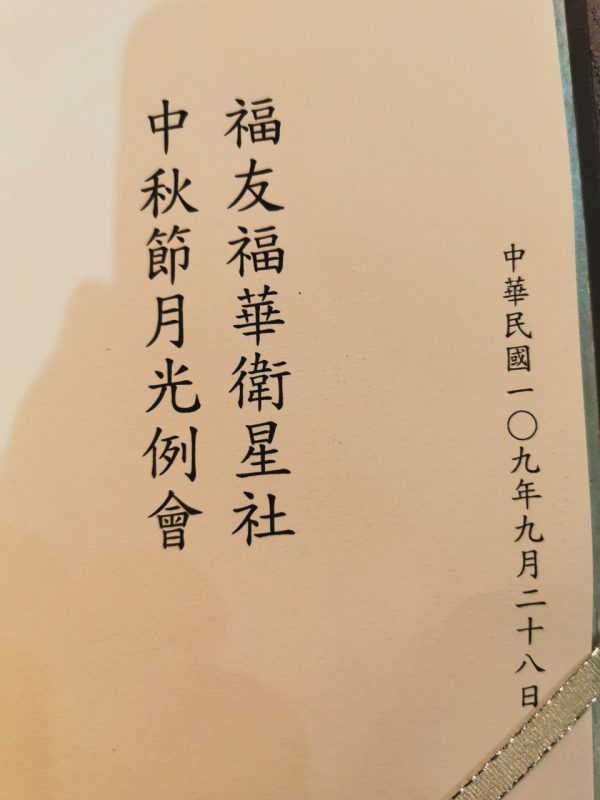 中華民國一〇九年九月二十八日
福友福華衛星社
中秋節月光例會